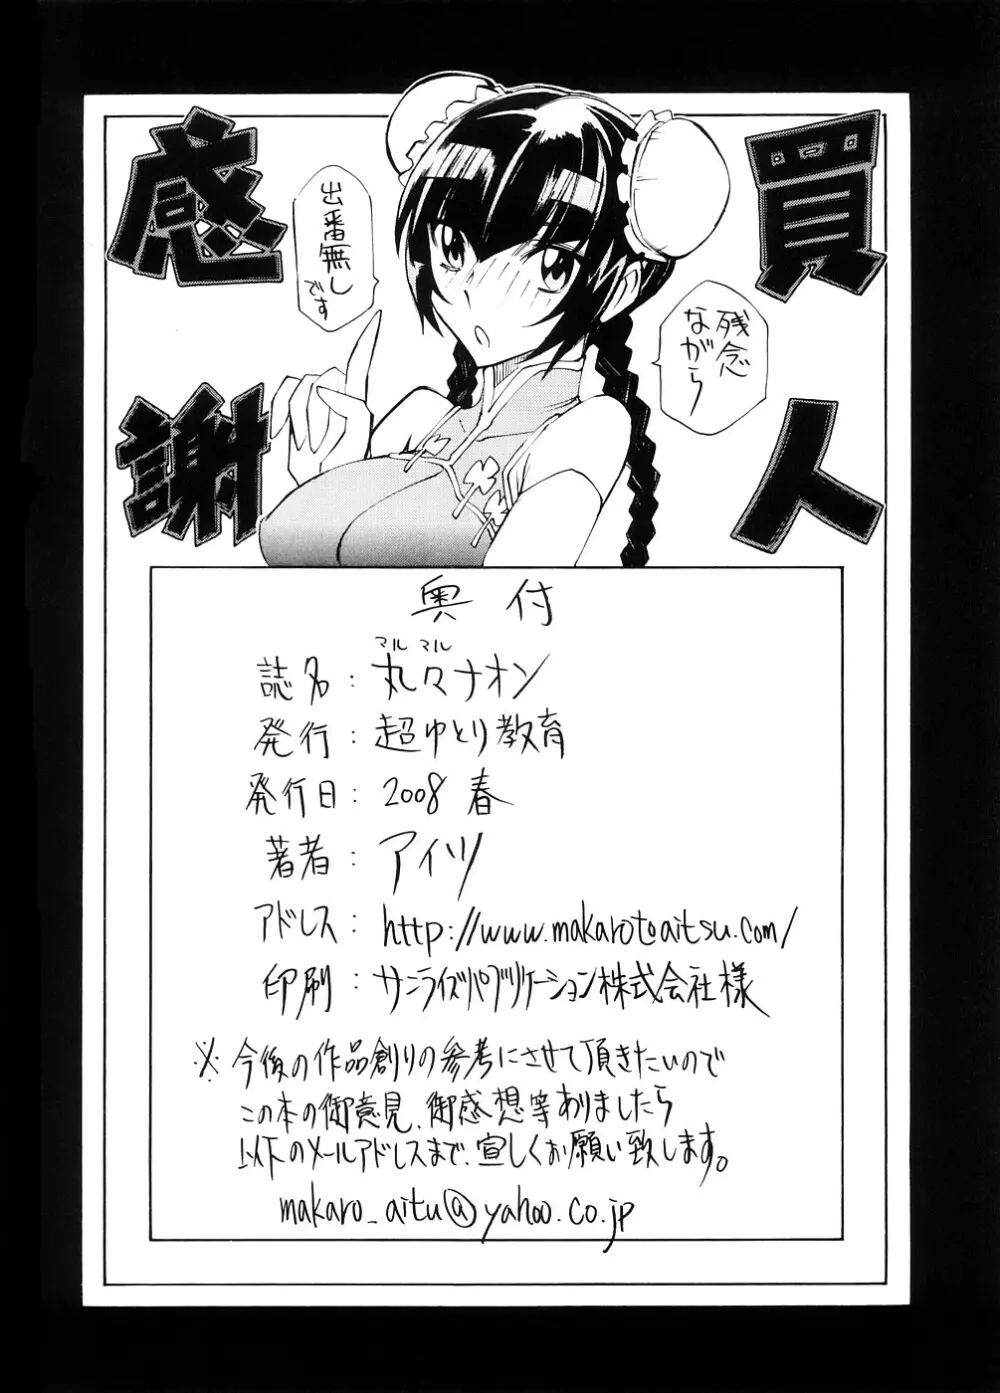 買人
感謝
残念
ながら
出番無し
です
奥付
マルマル
誌名：丸々ナオン
発行：超ゆとり教育
発行日：2008 春
著者：アイツ
アドレス：http://www.makarotoaitsu.com/
印刷：サンライズパブリケーション株式会社様
※今後の作品創りの参考にさせて頂きたいので
この本の御意見、御感想等ありましたら
以下のメールアドレスまで、宜しくお願い致します。
makaro_aitu@yahoo.co.jp